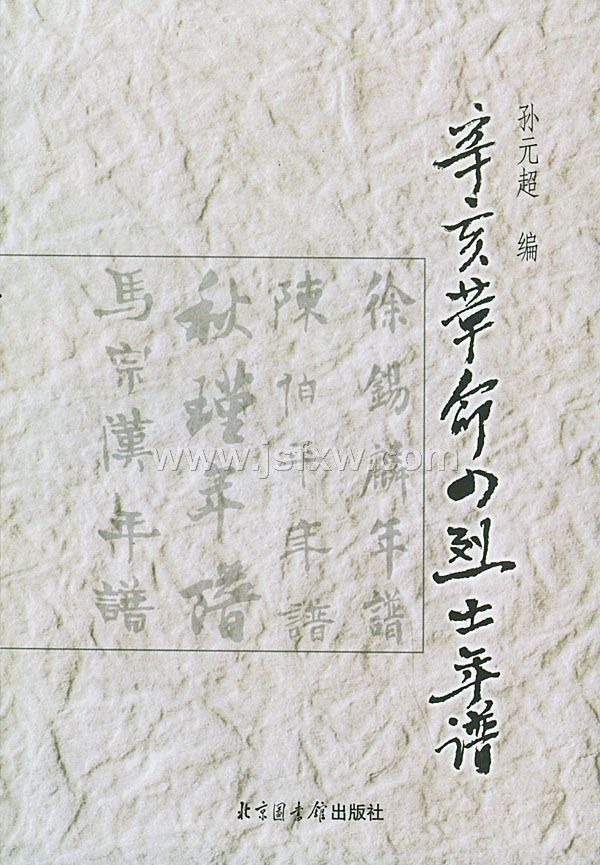 孙元超 编
辛亥革命四烈士年谱
徐錫麟年譜
陳伯平年譜
秋瑾年譜
馬宗漢年譜
www.jslxw.com
北京图书馆出版社